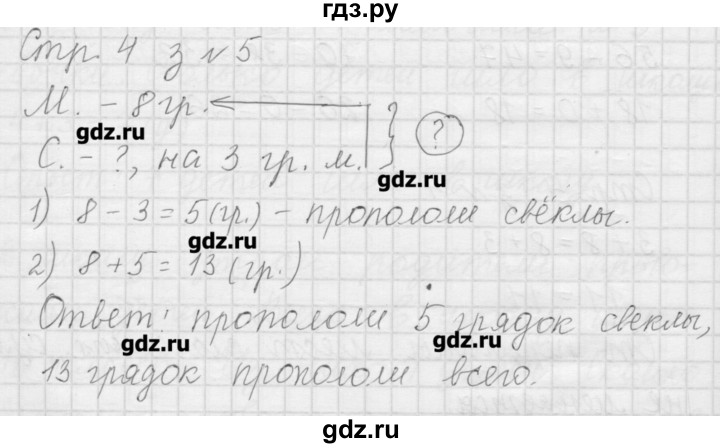 гдз.ру
Стр. 4 з № 5
М. - 8 гр.
gdz.ru
?
С. - ?, на 3 гр. м.
gdz.ru
1) 8 - 3 = 5 (гр.) - пропололи свёклы.
gdz.ru
2) 8 + 5 = 13 (гр.)
Ответ: пропололи 5 грядок свеклы,
gdz.ru gdz.ru
13 грядок пропололи всего.
гдз.ру